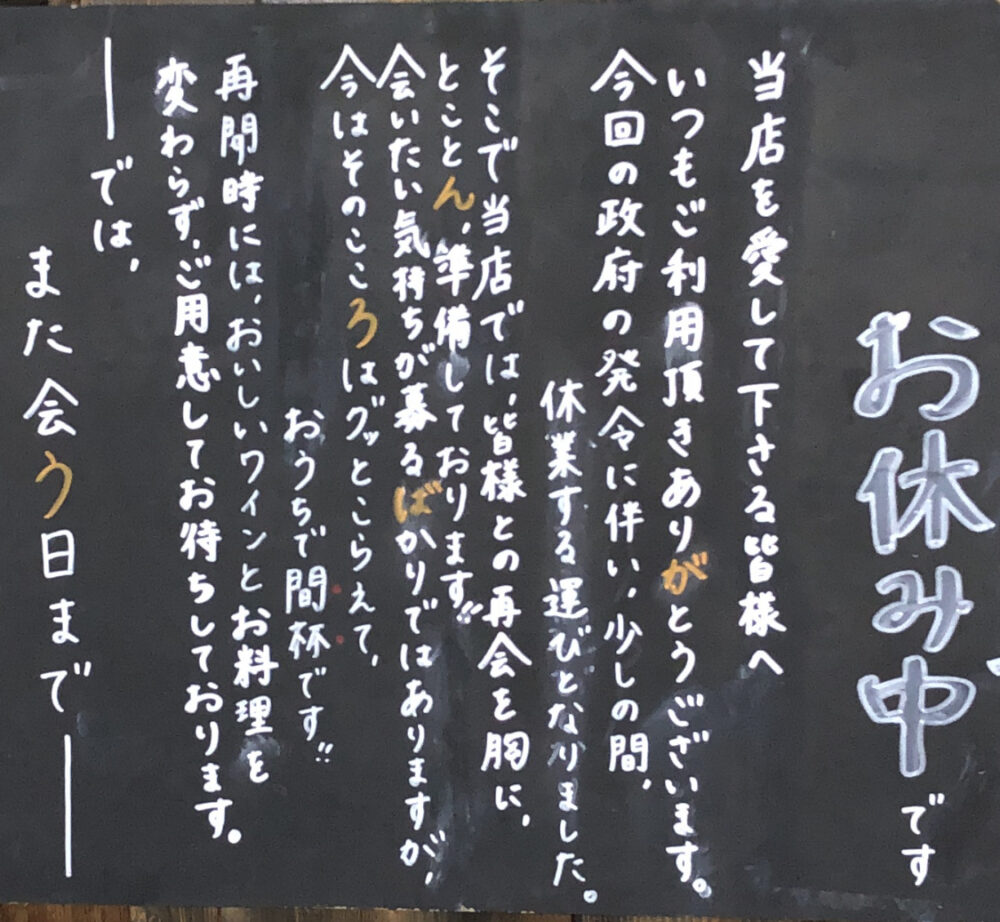 お休み中です
当店を愛して下さる皆様へ
いつもご利用頂きありがとうございます。
今回の政府の発令に伴い、少しの間、
休業する運びとなりました。
そこで当店では、皆様との再会を胸に、
とことん、準備しております!!
会いたい気持ちが募るばかりではありますが、
今はそのころはグッとこらえて、
おうちで間杯です!!
再開時には、おいしいワインとお料理を
変わらず、ご用意してお待ちしております。
――では、
また会う日まで――